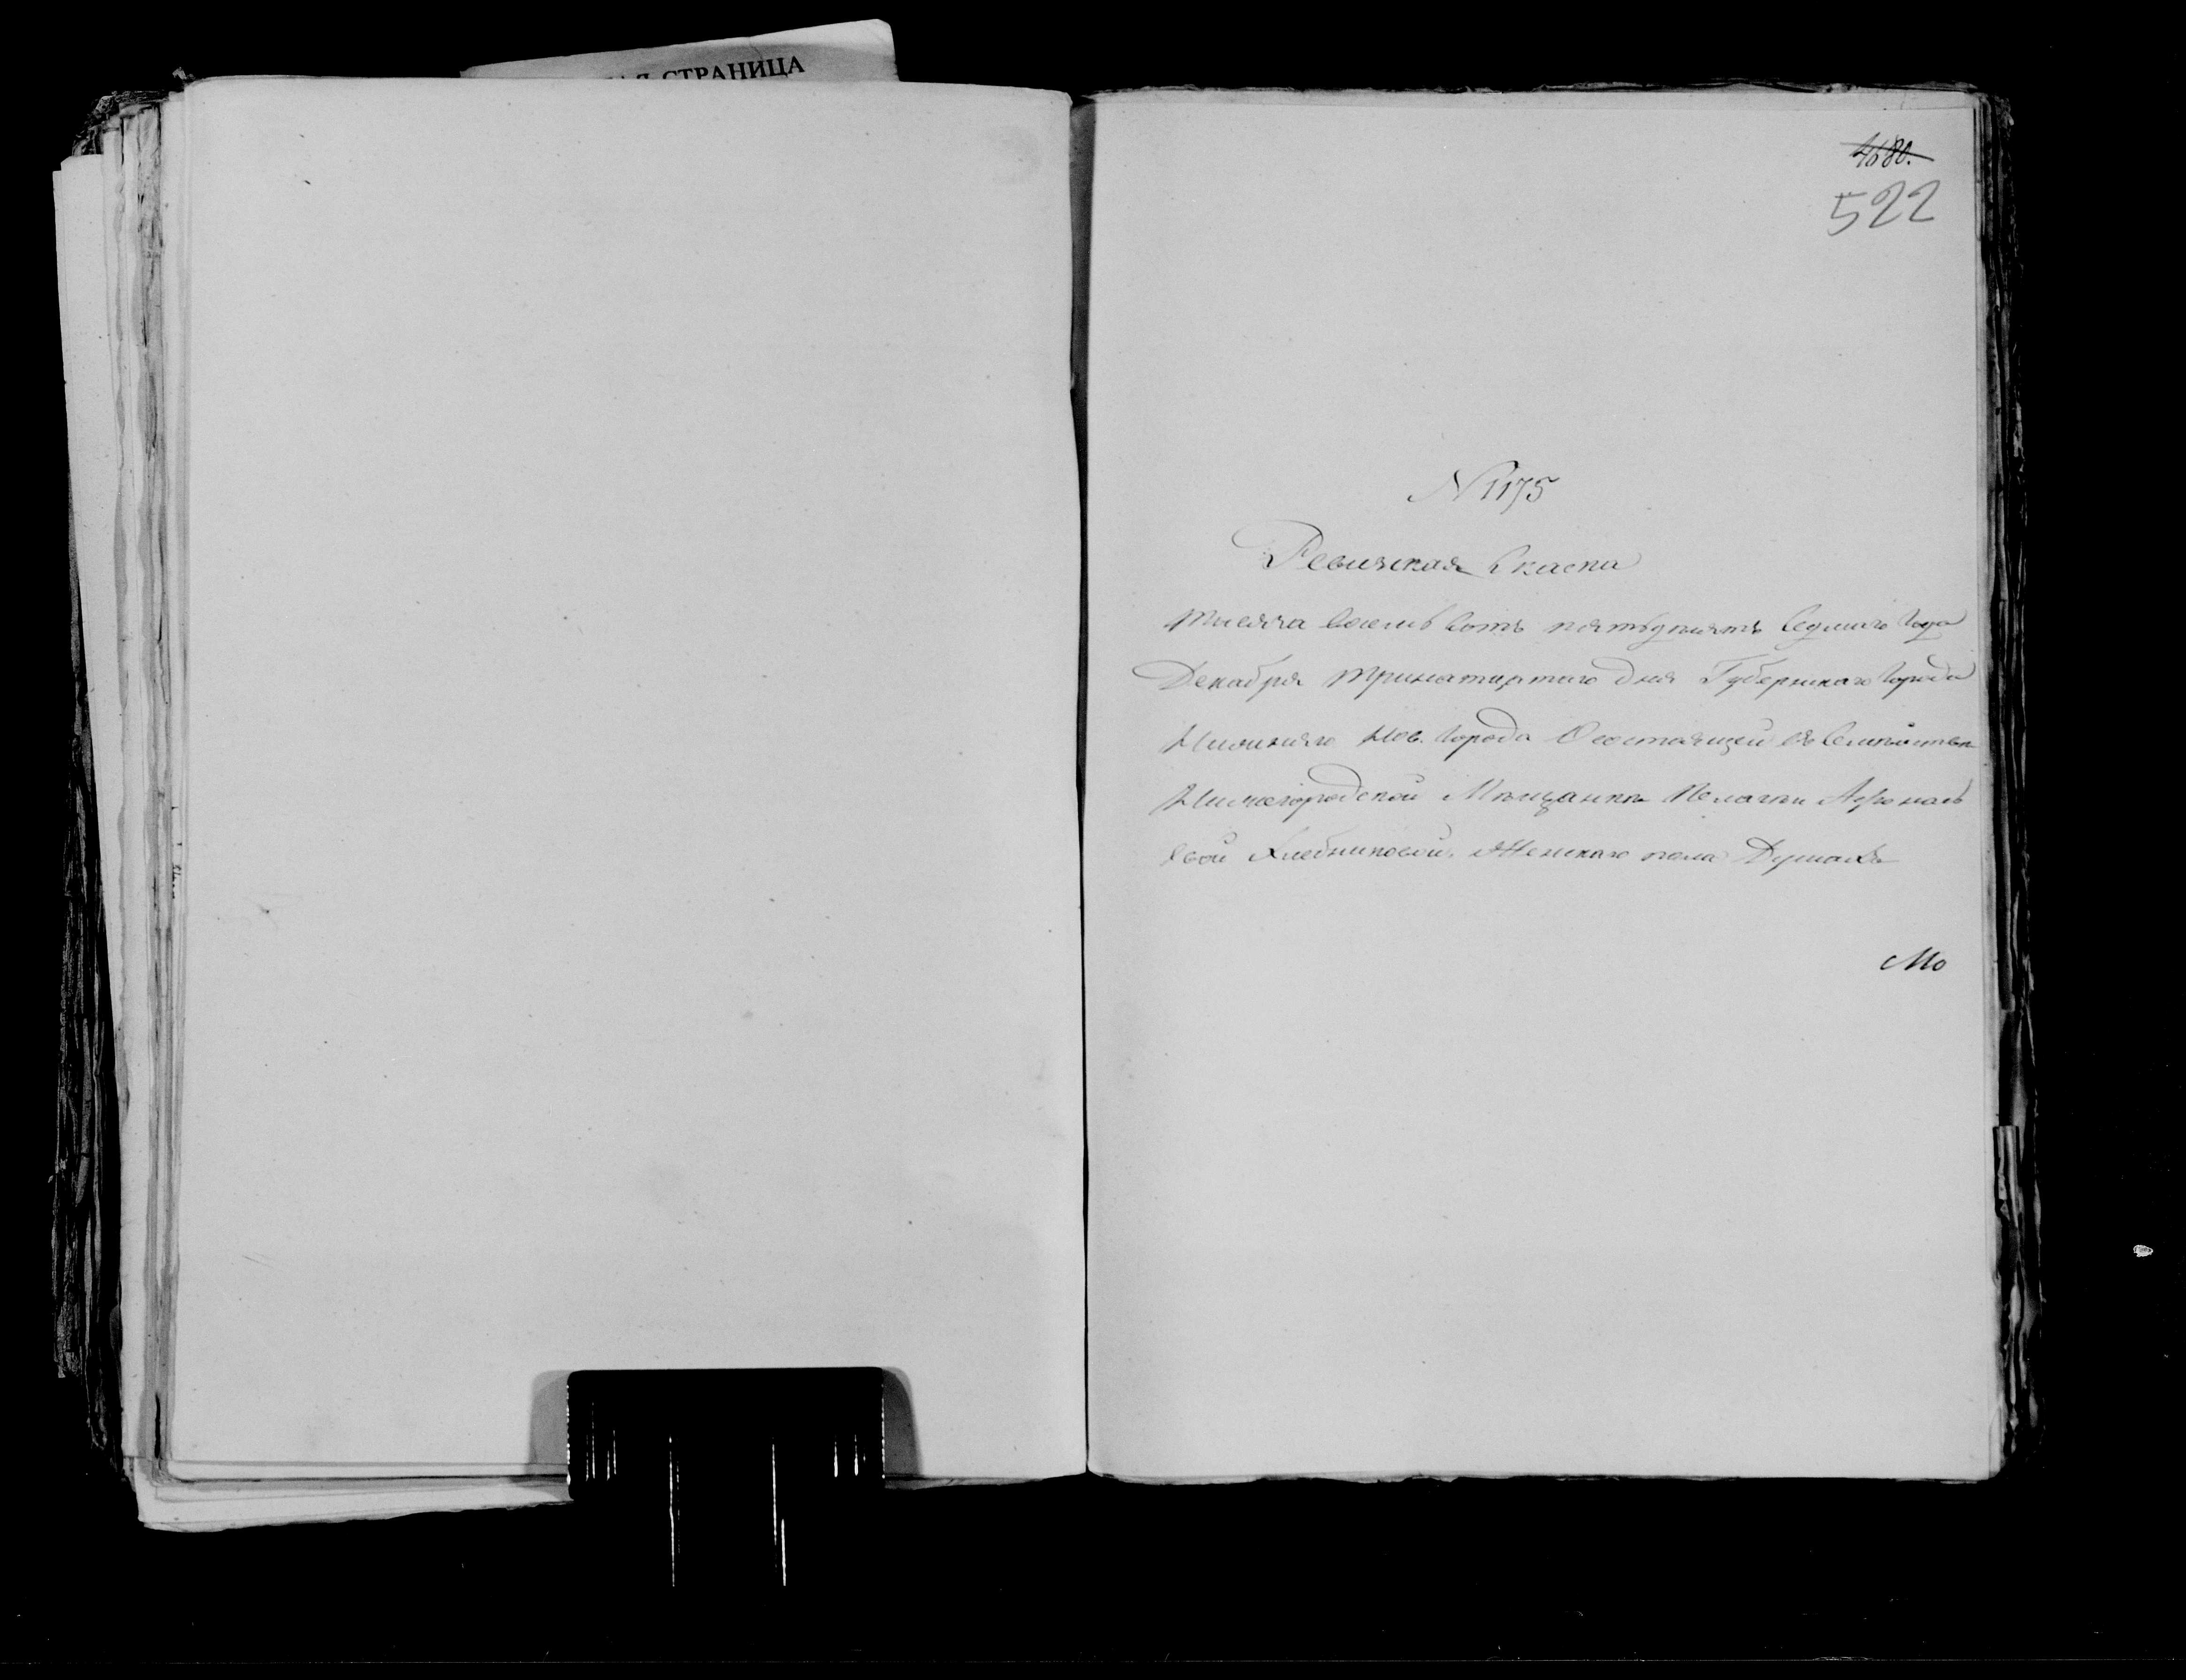 СТРАНИЦА
4680.
522
N 1175
Ревизская Скаска
Тысяча восемь сотъ пятьдесятъ Седмаго Года
Декабря тринатцатого дня Губернскаго Города
Нижняго Нов. Города О состоящей въ Семействе
Нижегородской Мещанки Пелагеи Афонась
евой Хлебниковой, Женскаго пола Душахъ
Мо